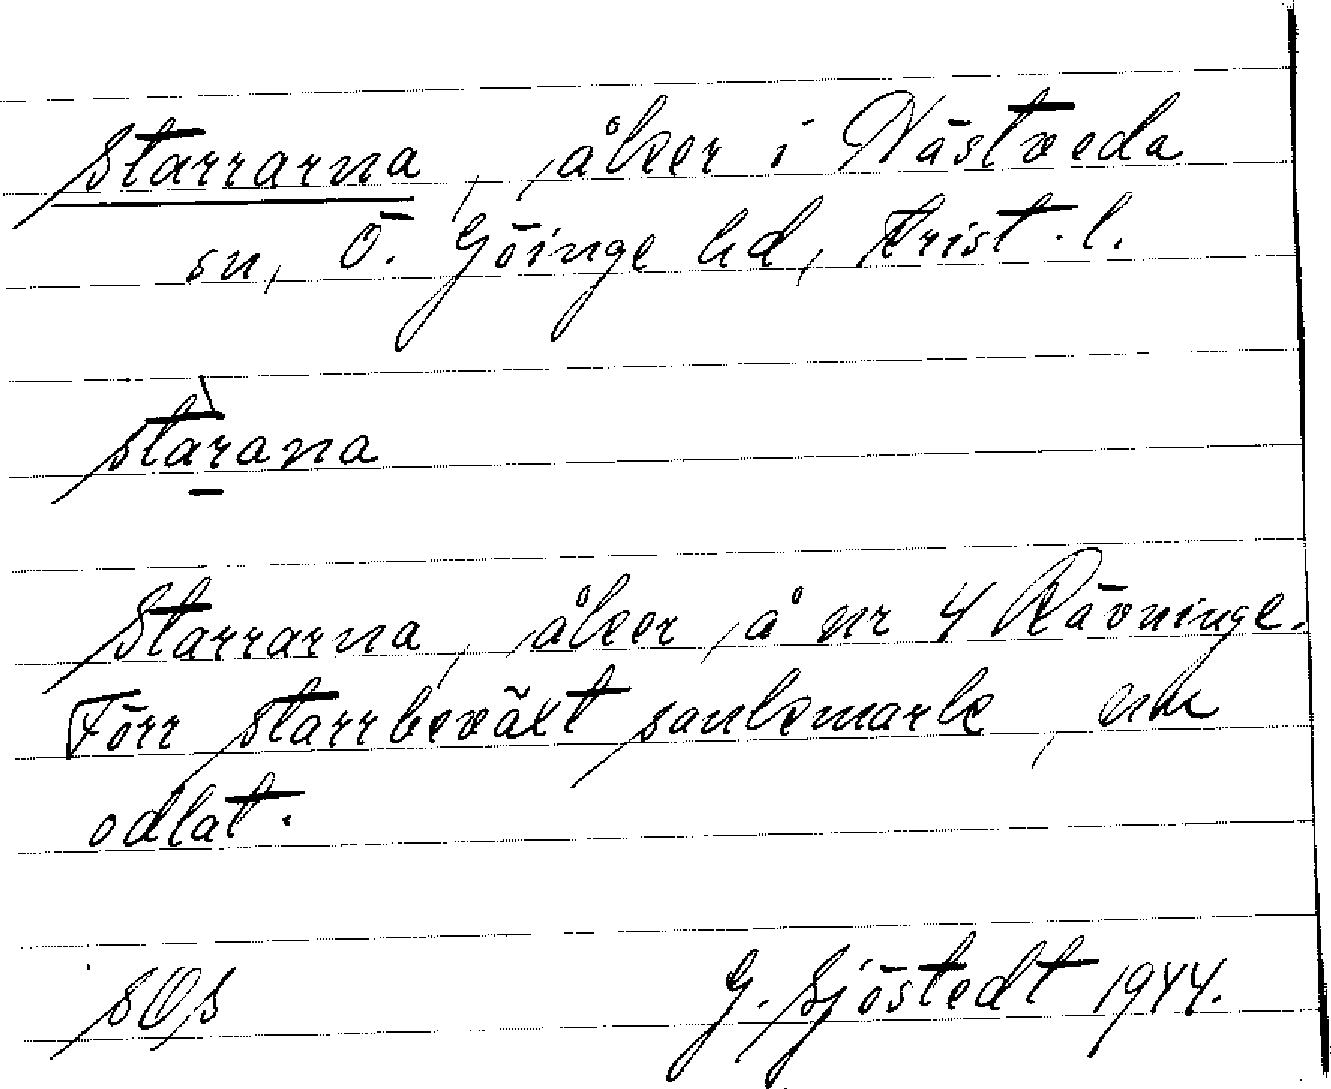 Starrarna, åker i Nästveda
sn, Ö. Göinge hd, Krist. l.
stàrana
Starrarna, åker å nr 4 Rävninge.
Förr starrbeväxt sankmark, nu
odlat.
G. Sjöstedt 1944.